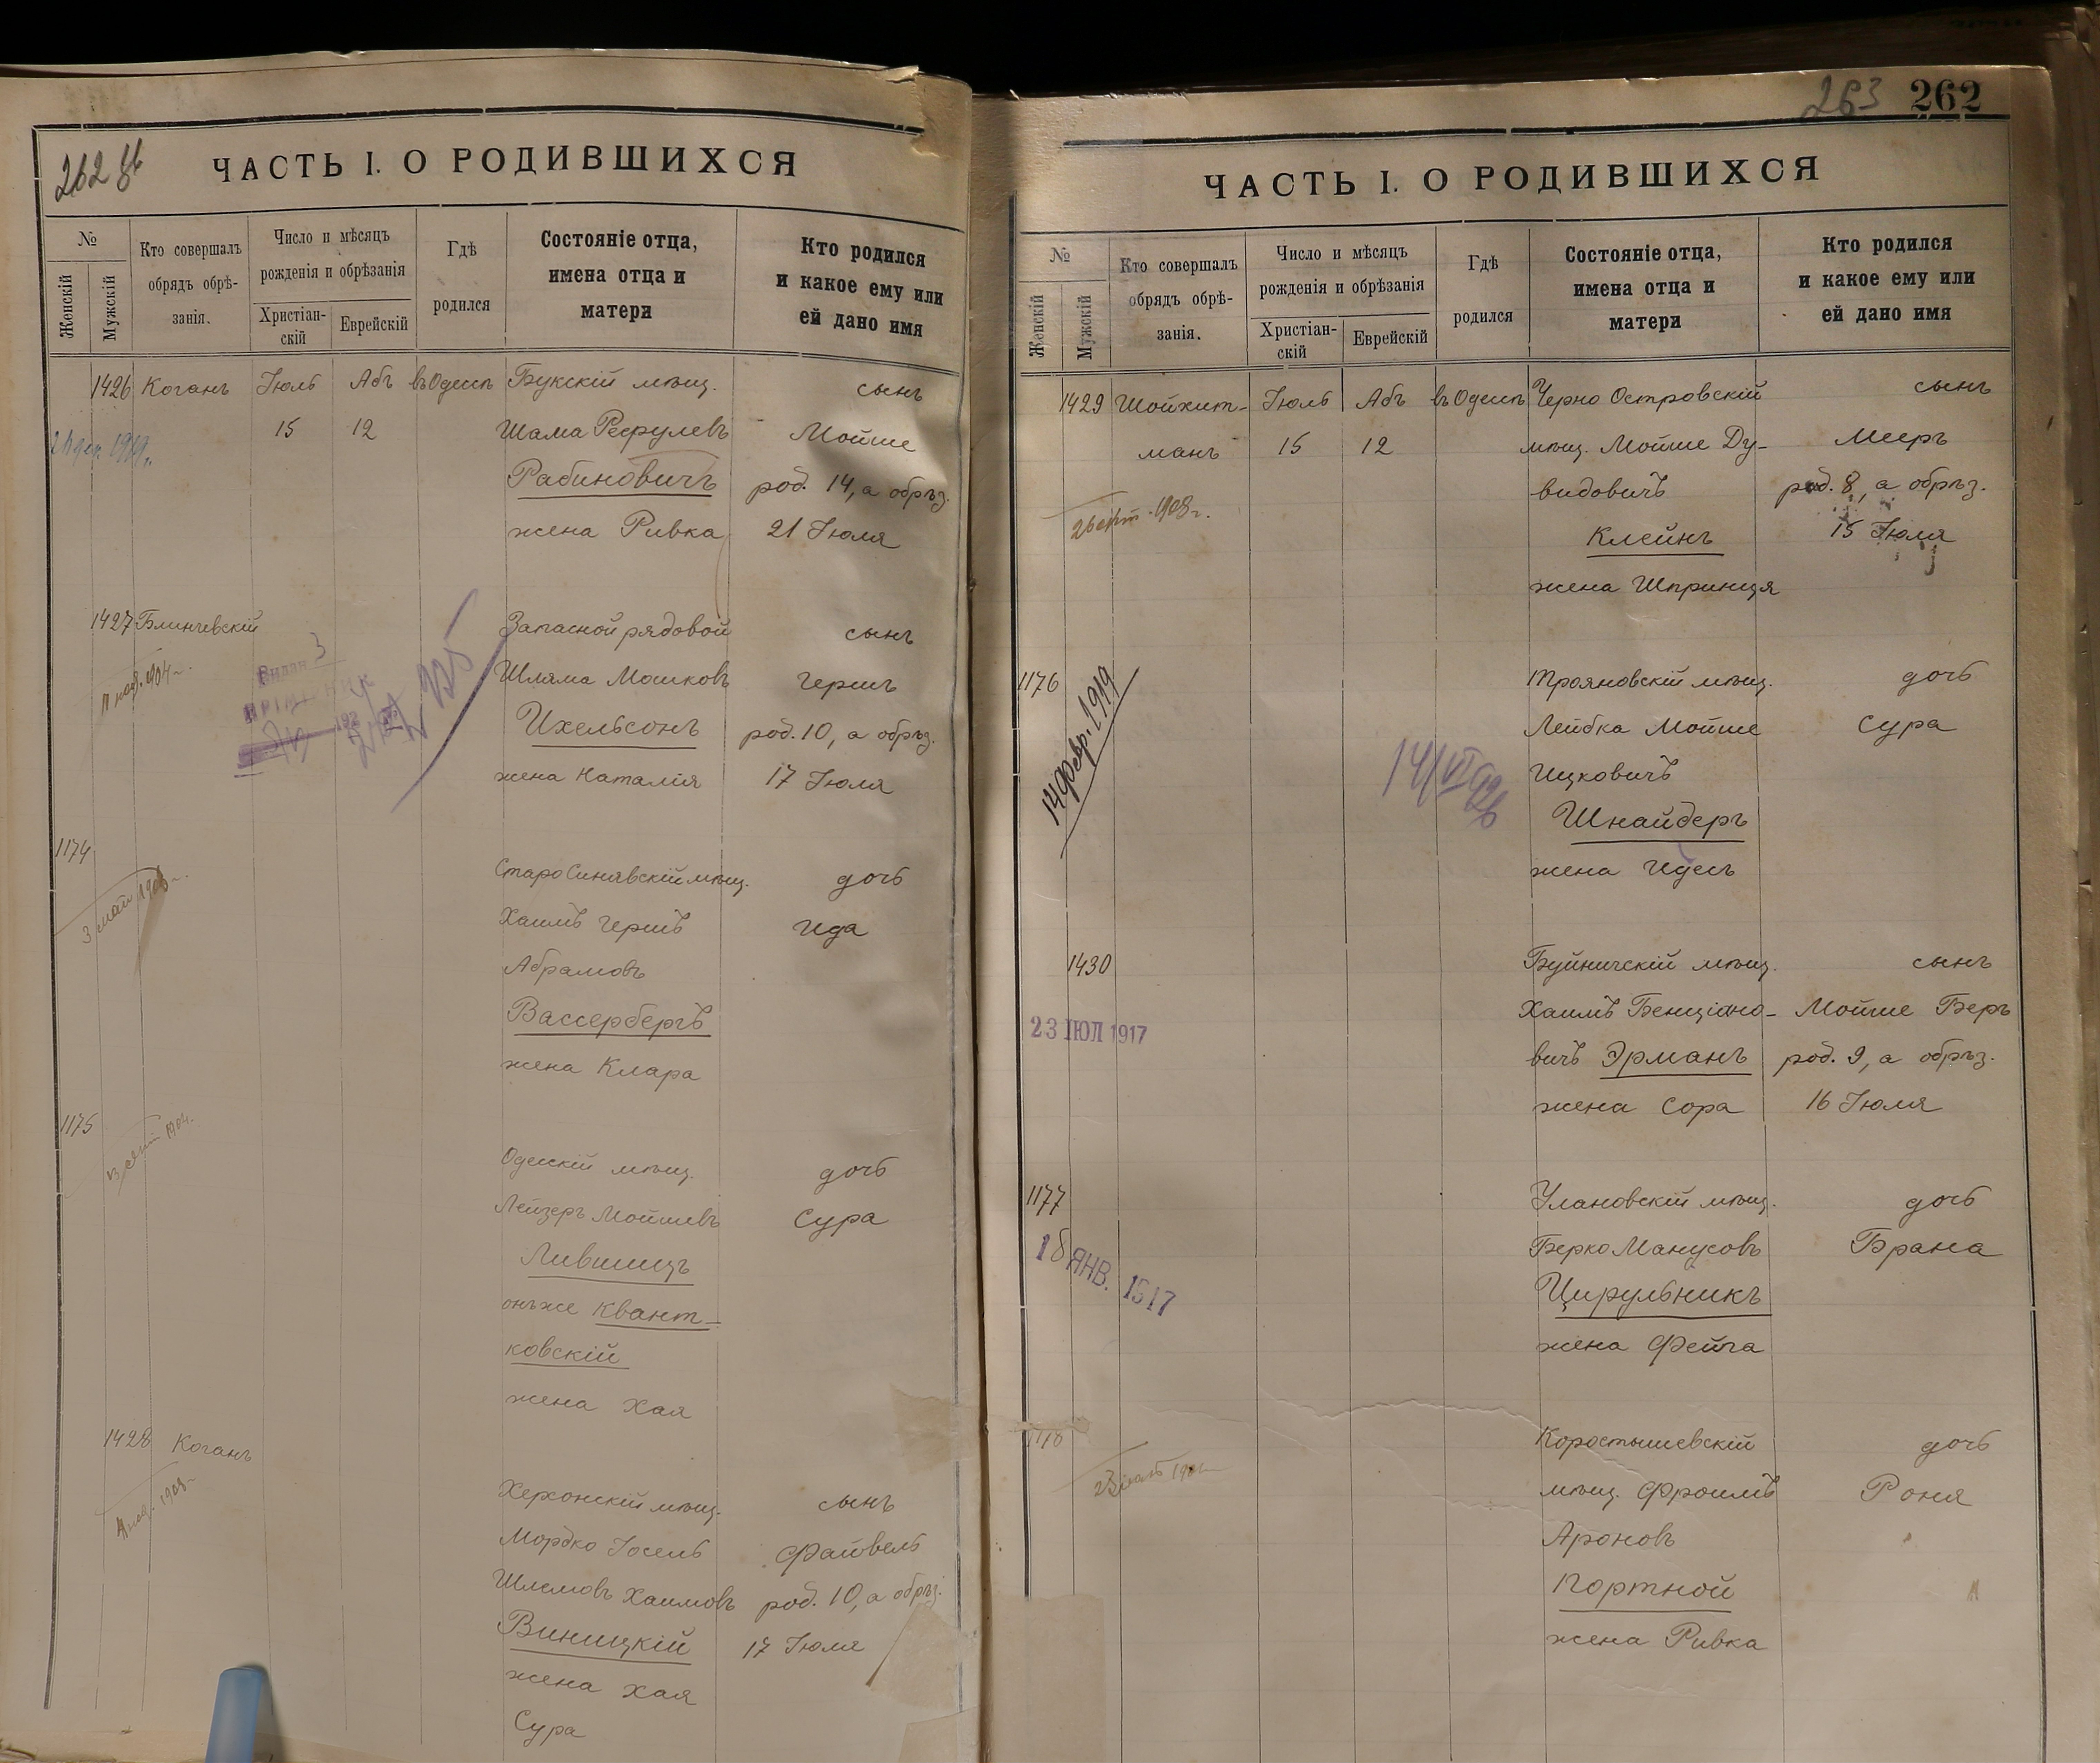 262 об
ЧАСТЬ I. О РОДИВШИХСЯ
№
Женскій
Мужскій
Кто совершалъ
обрядъ обрѣ-
занія.
Число и мѣсяцъ
рожденія и обрѣзанія
Христіан-
скій
Еврейскій
Гдѣ
родился
Состояніе отца,
имена отца и
матери
Кто родился
и какое ему или
ей дано имя
1426 Коганъ Іюль Абъ въ Одессѣ Букскій мѣщ. сынъ
15 12 Шама Рефулевъ Мойше
Рабиновичъ род. 14, а обрѣз.
жена Ривка 21 Іюля
1427 Блинчевскій Запасной рядовой сынъ
Шляма Мошковъ Гершъ
Ихельсонъ род. 10, а обрѣз.
жена Наталія 17 Іюля
1174 Старо Синявскій мѣщ. дочь
3 май
Хаимъ Гершъ Ида
Абрамовъ
Вассербергъ
жена Клара
1175 Одесскій мѣщ. дочь
Лейзеръ Мойшевъ Сура
Лившицъ
онъ же Квант-
ковскій
жена Хая
1428 Коганъ Херсонскій мѣщ. сынъ
Мордко Іосель Файвель
Шлемовъ Хаимовъ род. 10, а обрѣз.
Виницкій 17 Іюля
жена Хая
Сура
263 262
ЧАСТЬ I. О РОДИВШИХСЯ
№
Женскій
Мужскій
Кто совершалъ
обрядъ обрѣ-
занія.
Число и мѣсяцъ
рожденія и обрѣзанія
Христіан-
скій
Еврейскій
Гдѣ
родился
Состояніе отца,
имена отца и
матери
Кто родился
и какое ему или
ей дано имя
1429 Шойхит- Іюль Абъ въ Одессѣ Черно Островскій сынъ
манъ 15 12 мѣщ. Мойше Ду- Мееръ
видовичъ род. 8, а обрѣз.
Клейнъ 15 Іюля
жена Шпринця
1176 Трояновскій мѣщ. дочь
14 февр. 1919
Лейбка Мойше Сура
14/VI 926
Ицковичъ
Шнайдеръ
жена Идесъ
1430 Буйничскій мѣщ. сынъ
23 ІЮЛ 1917
Хаимъ Бенціоно- Мойше Беръ
вичъ Эрманъ род. 9, а обрѣз.
жена Сора 16 Іюля
1177 Улановскій мѣщ. дочь
ЯНВ. 1917
Берко Манусовъ Брана
Цирульникъ
жена Фейга
1178 Коростышевскій дочь
мѣщ. Фроимъ Роня
Ароновъ
Портной
жена Ривка